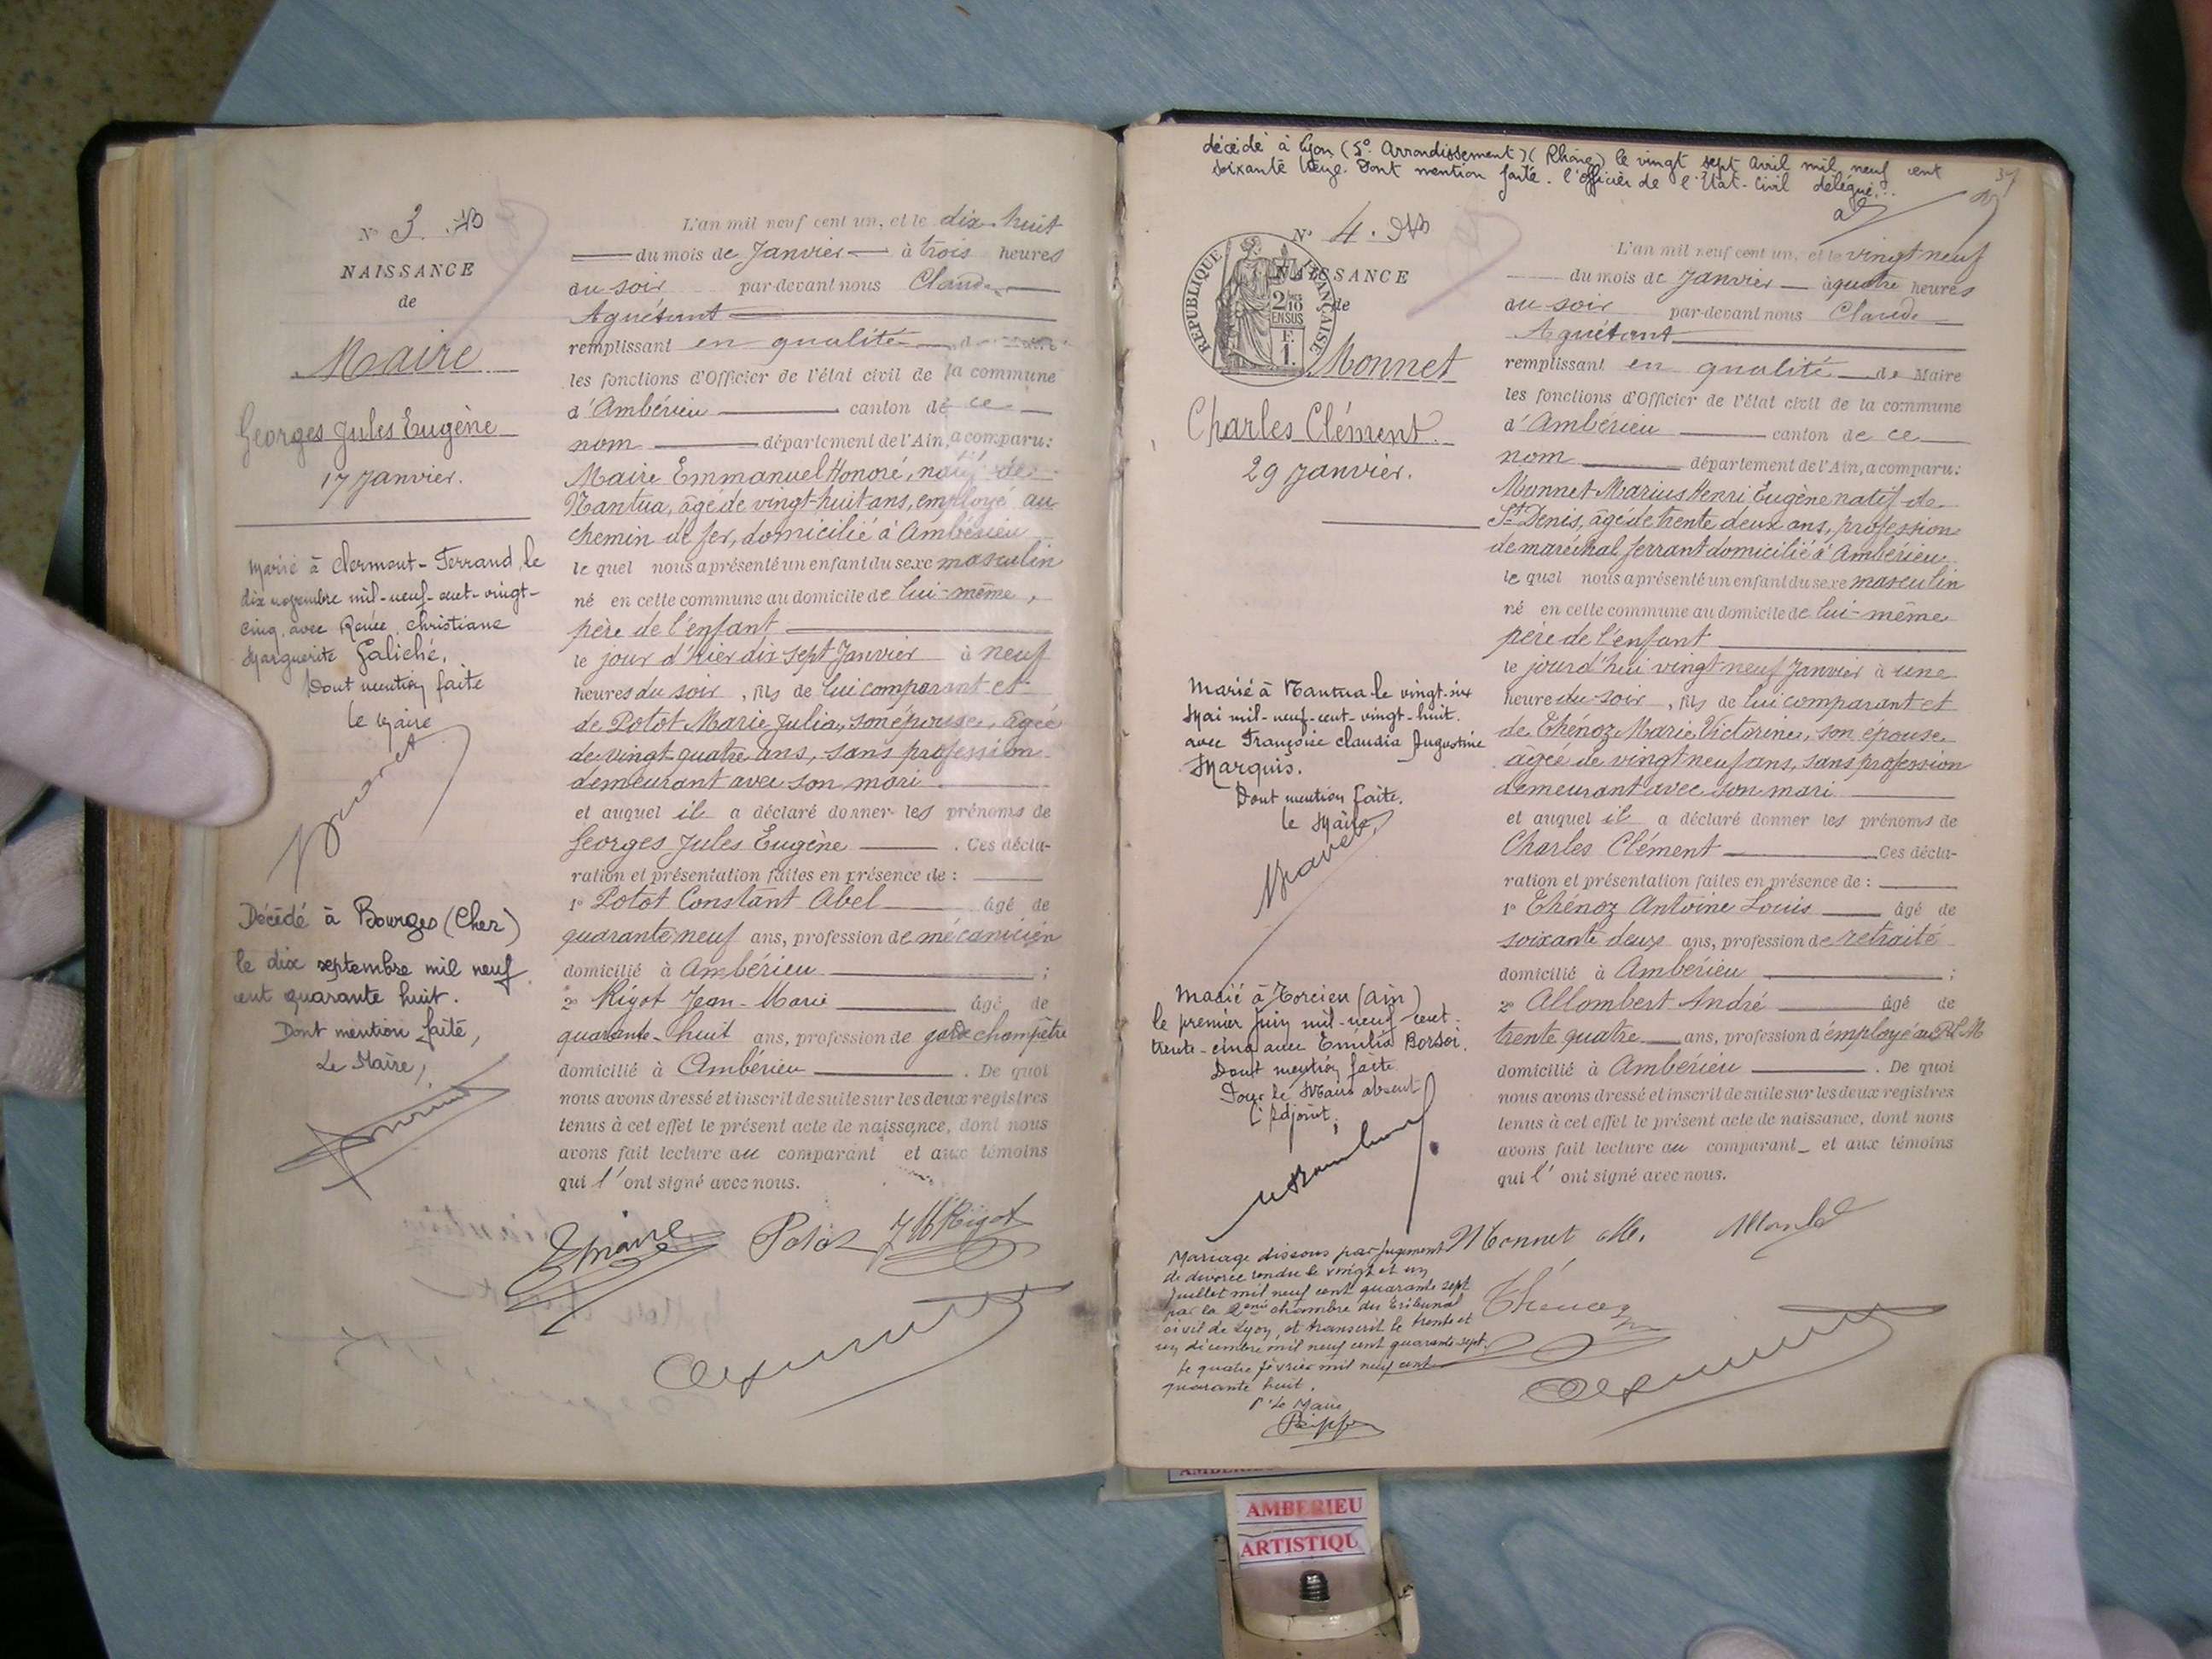 N° 3.
NAISSANCE
de
Maire
Georges Jules Eugène
17 Janvier.
Marié à Clermont-Ferrand, le
dix novembre mil-neuf-cent-vingt-
cinq, avec Renée, Christiane
Marguerite Galiché.
Dont mention faite
Le Maire
Décédé à Bourges (Cher)
le dix septembre mil neuf
cent quarante huit.
Dont mention faite,
Le Maire,
L'an mil neuf cent un, et le dix-huit
du mois de Janvier à trois heures
du soir par-devant nous Claude
Aguétant
remplissant en qualité
les fonctions d'Officier de l'état civil de la commune
d'Ambérieu canton de ce
nom département de l'Ain, a comparu:
Maire Emmanuel Honoré, natif de
Nantua, âgé de vingt-huit ans, employé au
chemin de fer, domicilié à Ambérieu
le quel nous a présenté un enfant du sexe masculin
né en cette commune au domicile de lui-même,
père de l'enfant
le jour d'hier dix sept Janvier à neuf
heures du soir, fils de lui comparant et
de Potot Marie Julia, son épouse, âgée
de vingt quatre ans, sans profession
demeurant avec son mari
et auquel il a déclaré donner les prénoms de
Georges Jules Eugène . Ces décla-
ration et présentation faites en présence de :
1° Potot Constant Abel âgé de
quarante neuf ans, profession de mécanicien
domicilié à Ambérieu ;
2° Rigot Jean-Marie âgé de
quarante-huit ans, profession de garde champêtre
domicilié à Ambérieu . De quoi
nous avons dressé et inscrit de suite sur les deux registres
tenus à cet effet le présent acte de naissance, dont nous
avons fait lecture au comparant et aux témoins
qui l'ont signé avec nous.
EMaire Potot JM Rigot
décédé à Lyon (5° Arrondissement) (Rhône) le vingt sept Avril mil neuf cent
soixante treize. Dont mention faite. l'officier de l'Etat-Civil délégué.
N° 4.
RÉPUBLIQUE FRANÇAISE
2/10 EN SUS
F. 1.
NAISSANCE
de
Monnet
Charles Clément
29 Janvier.
Marié à Nantua le vingt-six
Mai mil-neuf-cent-vingt-huit.
avec Françoise Claudia Augustine
Marquis.
Dont mention faite.
Le Maire,
Marié à Torcieu (Ain)
le premier Juin mil-neuf-cent-
trente-cinq avec Emilia Borsoi.
Dont mention faite.
Pour le Maire absent
L'Adjoint,
Mariage dissous par jugement
de divorce rendu le vingt et un
Juillet mil neuf cent quarante sept
par la 2eme chambre du Tribunal
civil de Lyon, et transcrit le trente et
un décembre mil neuf cent quarante-sept.
Le quatre février mil neuf cent
quarante huit.
P. le Maire
L'an mil neuf cent un, et le vingt neuf
du mois de Janvier à quatre heures
du soir par-devant nous Claude
Aguétant
remplissant en qualité de Maire
les fonctions d'Officier de l'état civil de la commune
d'Ambérieu canton de ce
nom département de l'Ain, a comparu:
Monnet Marius Henri Eugène natif de
St Denis, âgé de trente deux ans, profession
de maréchal ferrant domicilié à Ambérieu
le quel nous a présenté un enfant du sexe masculin
né en cette commune au domicile de lui-même
père de l'enfant
le jour d'hui vingt neuf Janvier à une
heure du soir, fils de lui comparant et
de Thénoz Marie Victorine, son épouse
âgée de vingt neuf ans, sans profession
demeurant avec son mari
et auquel il a déclaré donner les prénoms de
Charles Clément . Ces décla-
ration et présentation faites en présence de :
1° Thénoz Antoine Louis âgé de
soixante deux ans, profession de retraité
domicilié à Ambérieu ;
2° Allombert André âgé de
trente quatre ans, profession d'employé au P.L.M
domicilié à Ambérieu . De quoi
nous avons dressé et inscrit de suite sur les deux registres
tenus à cet effet le présent acte de naissance, dont nous
avons fait lecture au comparant et aux témoins
qui l'ont signé avec nous.
Monnet M.
Thénoz
AMBERIEU
ARTISTIQU